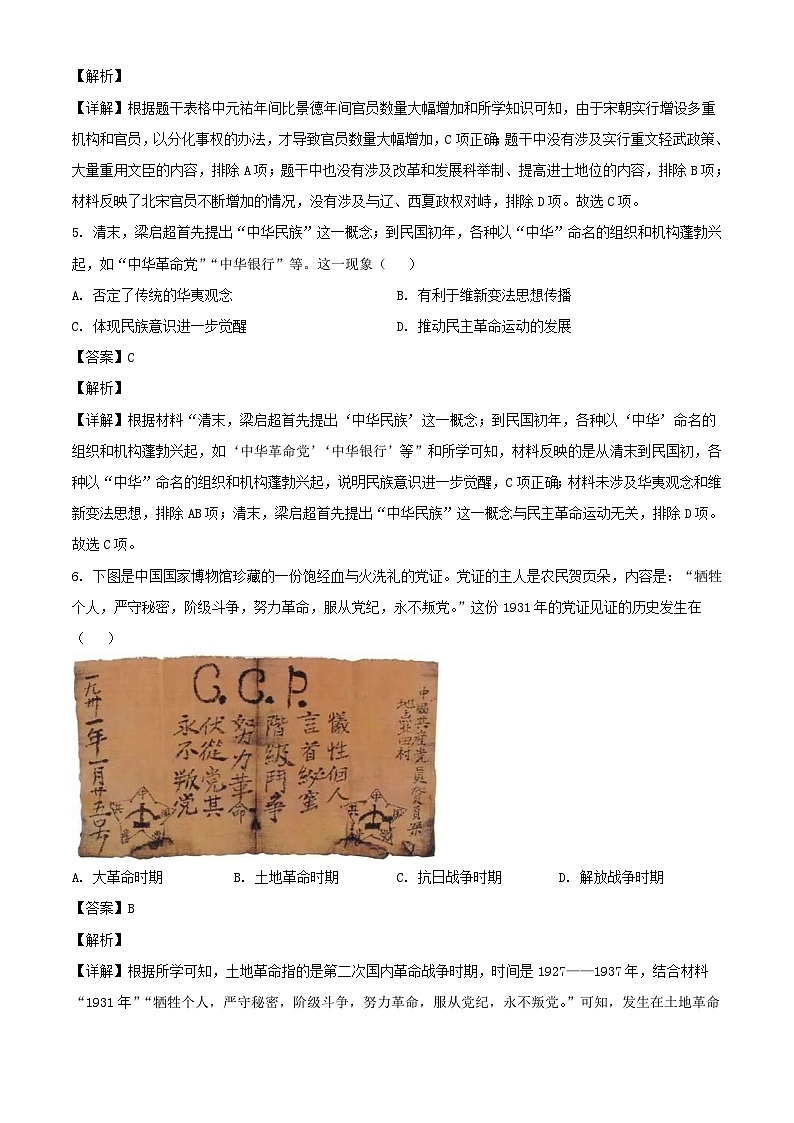 【解析】
【详解】根据题干表格中元祐年间比景德年间官员数量大幅增加和所学知识可知，由于宋朝实行增设多重
机构和官员，以分化事权的办法，才导致官员数量大幅增加，C 项正确；题干中没有涉及实行重文轻武政策、
大量重用文臣的内容，排除 A 项；题干中也没有涉及改革和发展科举制、提高进士地位的内容，排除 B 项；
材料反映了北宋官员不断增加的情况，没有涉及与辽、西夏政权对峙，排除 D 项。故选 C 项。
5. 清末，梁启超首先提出“中华民族”这一概念；到民国初年，各种以“中华”命名的组织和机构蓬勃兴
起，如“中华革命党”“中华银行”等。这一现象（   ）
A. 否定了传统的华夷观念 B. 有利于维新变法思想传播
C. 体现民族意识进一步觉醒 D. 推动民主革命运动的发展
【答案】C
【解析】
【详解】根据材料“清末，梁启超首先提出‘中华民族’这一概念；到民国初年，各种以‘中华’命名的
组织和机构蓬勃兴起，如‘中华革命党’‘中华银行’等”和所学可知，材料反映的是从清末到民国初，各
种以“中华”命名的组织和机构蓬勃兴起，说明民族意识进一步觉醒，C 项正确；材料未涉及华夷观念和维
新变法思想，排除 AB 项；清末，梁启超首先提出“中华民族”这一概念与民主革命运动无关，排除 D 项。
故选 C 项。
6. 下图是中国国家博物馆珍藏的一份饱经血与火洗礼的党证。党证的主人是农民贺页朵，内容是：“牺牲
个人，严守秘密，阶级斗争，努力革命，服从党纪，永不叛党。”这份 1931 年的党证见证的历史发生在
（   ）
C.C.P.
中國共産党員
地点北田村
犠性個人
言首秘蜜
階級鬥争
努力革命
伏從党其
永不叛党
一九卅一年一月廿五
A. 大革命时期 B. 土地革命时期 C. 抗日战争时期 D. 解放战争时期
【答案】B
【解析】
【详解】根据所学可知，土地革命指的是第二次国内革命战争时期，时间是 1927——1937 年，结合材料
“1931 年”“牺牲个人，严守秘密，阶级斗争，努力革命，服从党纪，永不叛党。”可知，发生在土地革命